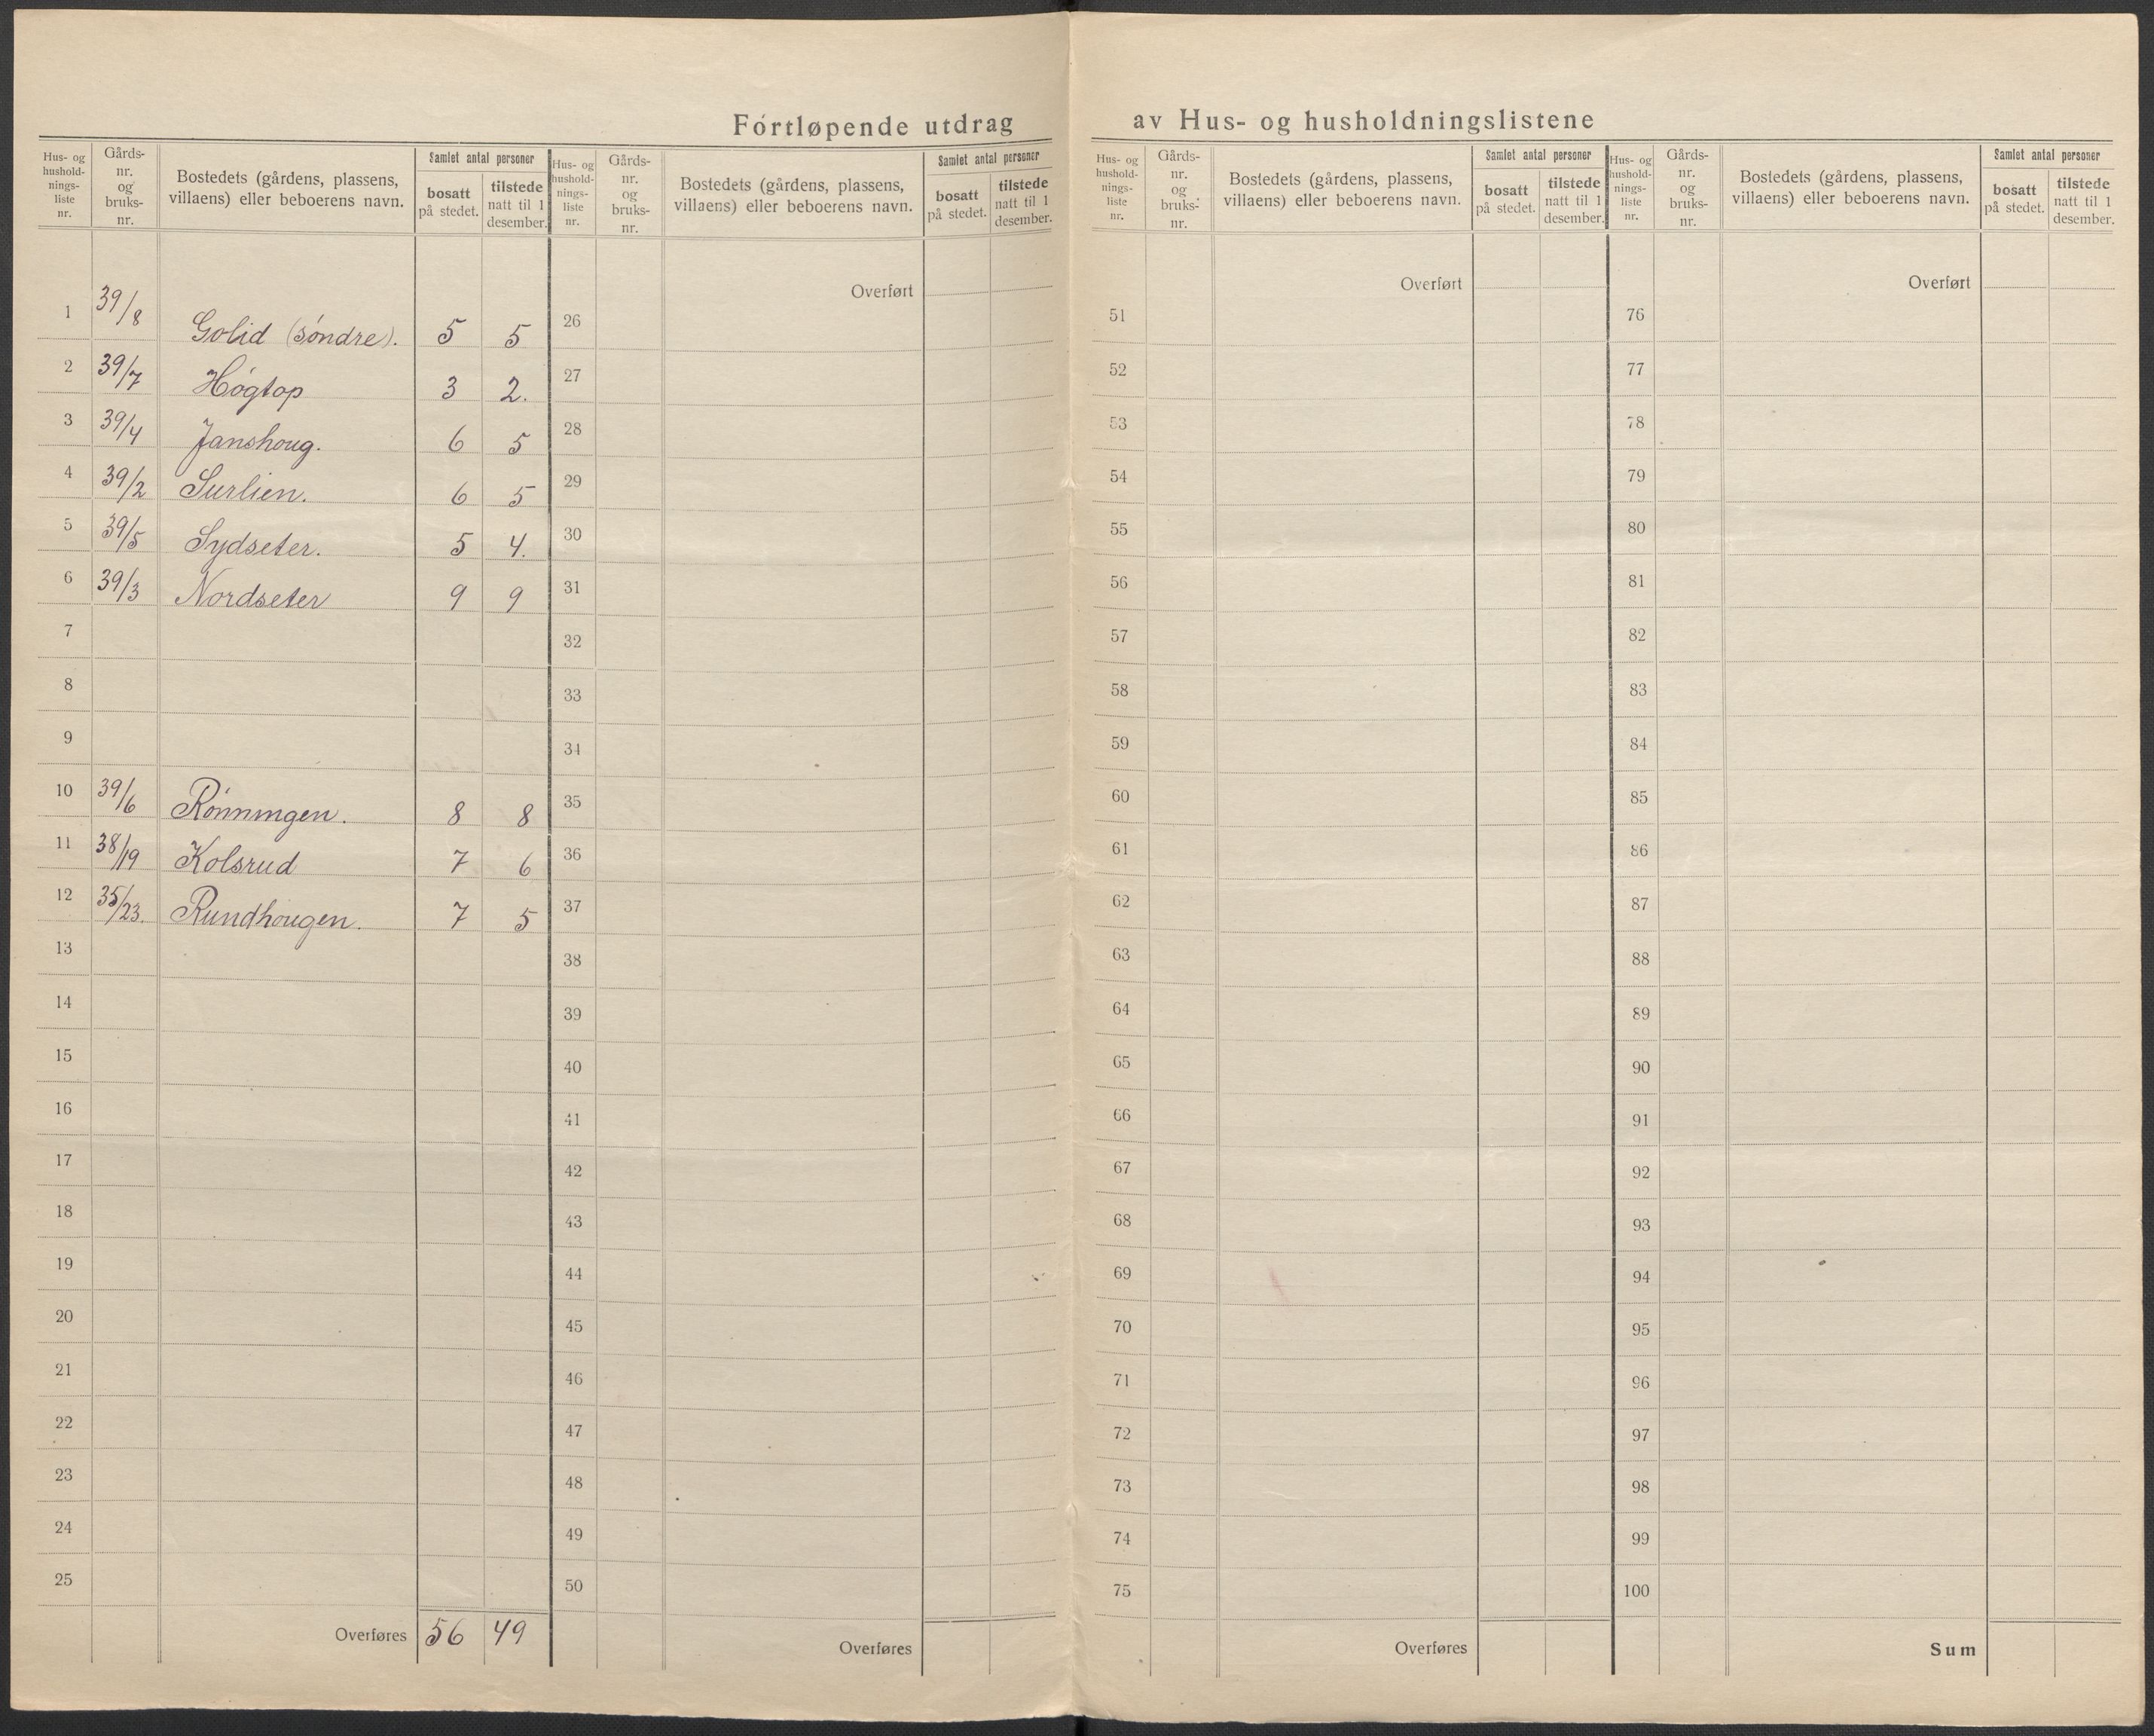 Fortløpende utdrag av Hus- og husholdningslistene
Hus- og husholdnings-liste nr. Gårds-nr. og bruks-nr. Bostedets (gårdens, plassens, villaens) eller beboerens navn. Samlet antal personer bosatt på stedet. tilstede natt til 1 desember.
1 39/8 Golid (søndre). 5 5
2 39/7 Høgtop 3 2.
3 39/4 Janshoug. 6 5
4 39/2 Surlien. 6 5
5 39/5 Sydseter. 5 4.
6 39/3 Nordseter 9 9
7
8
9
10 39/6 Rønningen. 8 8
11 38/19 Kolsrud 7 6
12 35/23. Rundhougen. 7 5
13
14
15
16
17
18
19
20
21
22
23
24
25
Overføres 56 49
Hus- og husholdnings-liste nr. Gårds-nr. og bruks-nr. Bostedets (gårdens, plassens, villaens) eller beboerens navn. Samlet antal personer bosatt på stedet. tilstede natt til 1 desember.
Overført
26
27
28
29
30
31
32
33
34
35
36
37
38
39
40
41
42
43
44
45
46
47
48
49
50
Overføres
Hus- og husholdnings-liste nr. Gårds-nr. og bruks-nr. Bostedets (gårdens, plassens, villaens) eller beboerens navn. Samlet antal personer bosatt på stedet. tilstede natt til 1 desember.
Overført
51
52
53
54
55
56
57
58
59
60
61
62
63
64
65
66
67
68
69
70
71
72
73
74
75
Overføres
Hus- og husholdnings-liste nr. Gårds-nr. og bruks-nr. Bostedets (gårdens, plassens, villaens) eller beboerens navn. Samlet antal personer bosatt på stedet. tilstede natt til 1 desember.
Overført
76
77
78
79
80
81
82
83
84
85
86
87
88
89
90
91
92
93
94
95
96
97
98
99
100
Sum